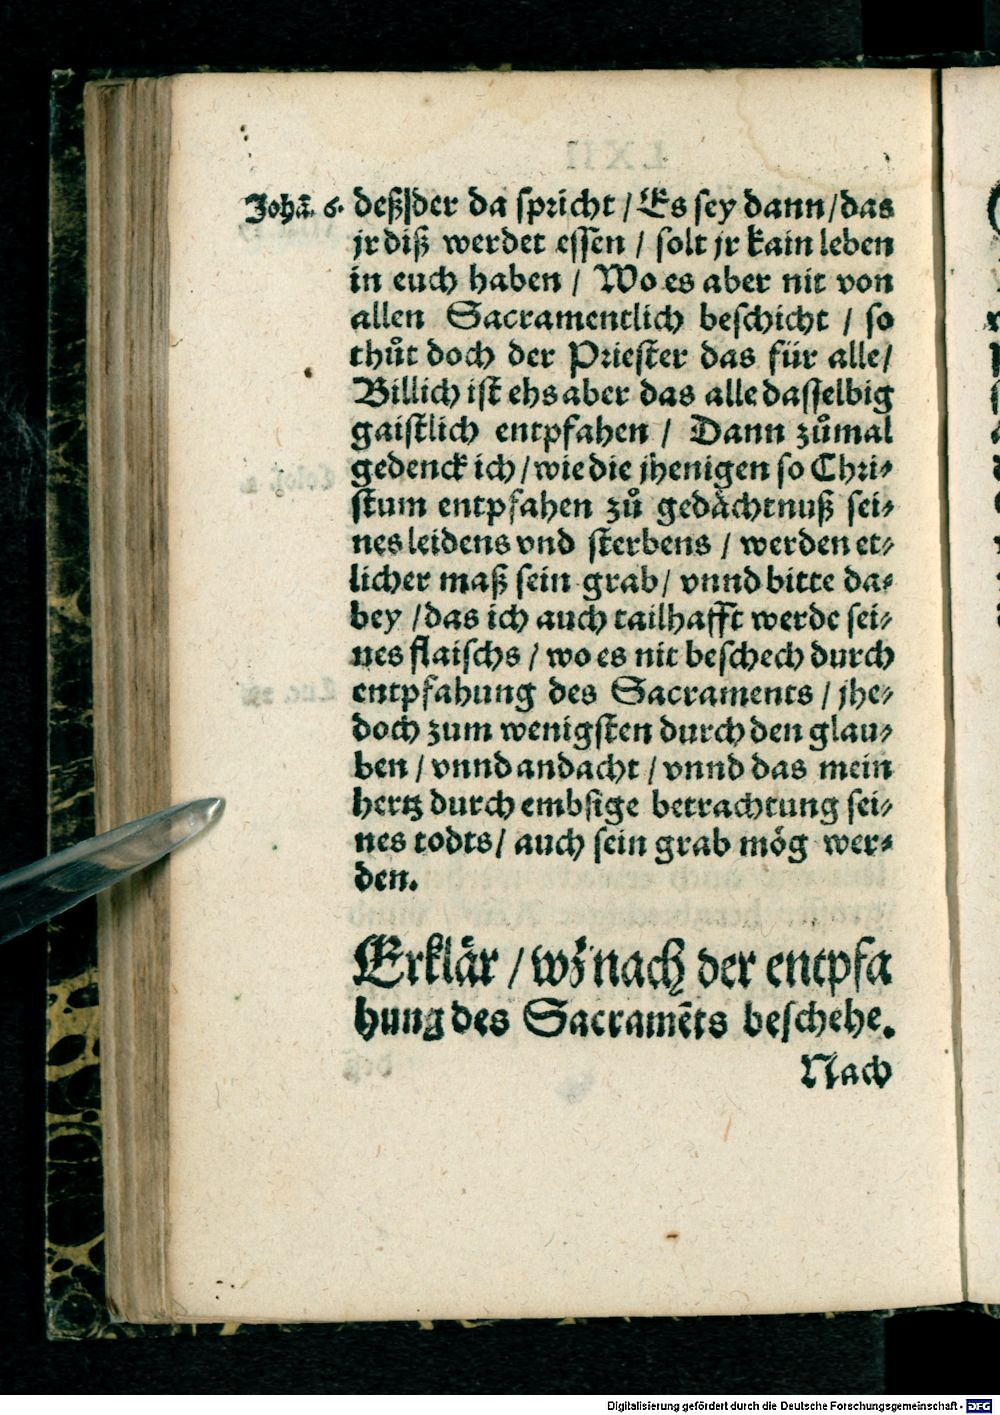 Johã. 6. deß|der da spricht / Es sey dann / das
jr diß werdet essen / solt jr kain leben
in euch haben / Wo es aber nit von
allen Sacramentlich beschicht / so
thůt doch der Priester das für alle /
Billich ist ehs aber das alle dasselbig
gaistlich entpfahen / Dann zůmal
gedenck ich / wie die jhenigen so Chri⸗
stum entpfahen zů gedächtnuß sei⸗
nes leidens vnd sterbens / werden et⸗
licher maß sein grab / vnnd bitte da⸗
bey / das ich auch tailhafft werde sei⸗
nes flaischs / wo es nit beschech durch
entpfahung des Sacraments / jhe⸗
doch zum wenigsten durch den glau⸗
ben / vnnd andacht / vnnd das mein
hertz durch embsige betrachtung sei⸗
nes todts / auch sein grab mög wer⸗
den.
Erklär / wz nach der entpfa
hung des Sacramẽts beschehe.
Nach
Digitalisierung gefördert durch die Deutsche Forschungsgemeinschaft - DFG